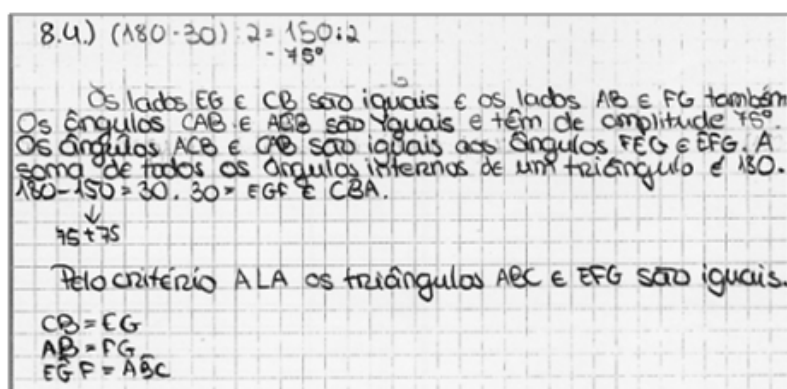 8.4.) (180-30):2 = 150:2
= 75°
Os lados EG e CB são iguais e os lados AB e FG também
Os ângulos CAB e ACB são iguais e têm de amplitude 75°.
Os ângulos ACB e CAB são iguais aos ângulos FEG e EFG. A
soma de todos os ângulos internos de um triângulo é 180.
180-150=30. 30= EGF e CBA.
↓
75+75
Pelo critério ALA os triângulos ABC e EFG são iguais.
CB = EG
AB = FG
EĜF = AB̂C